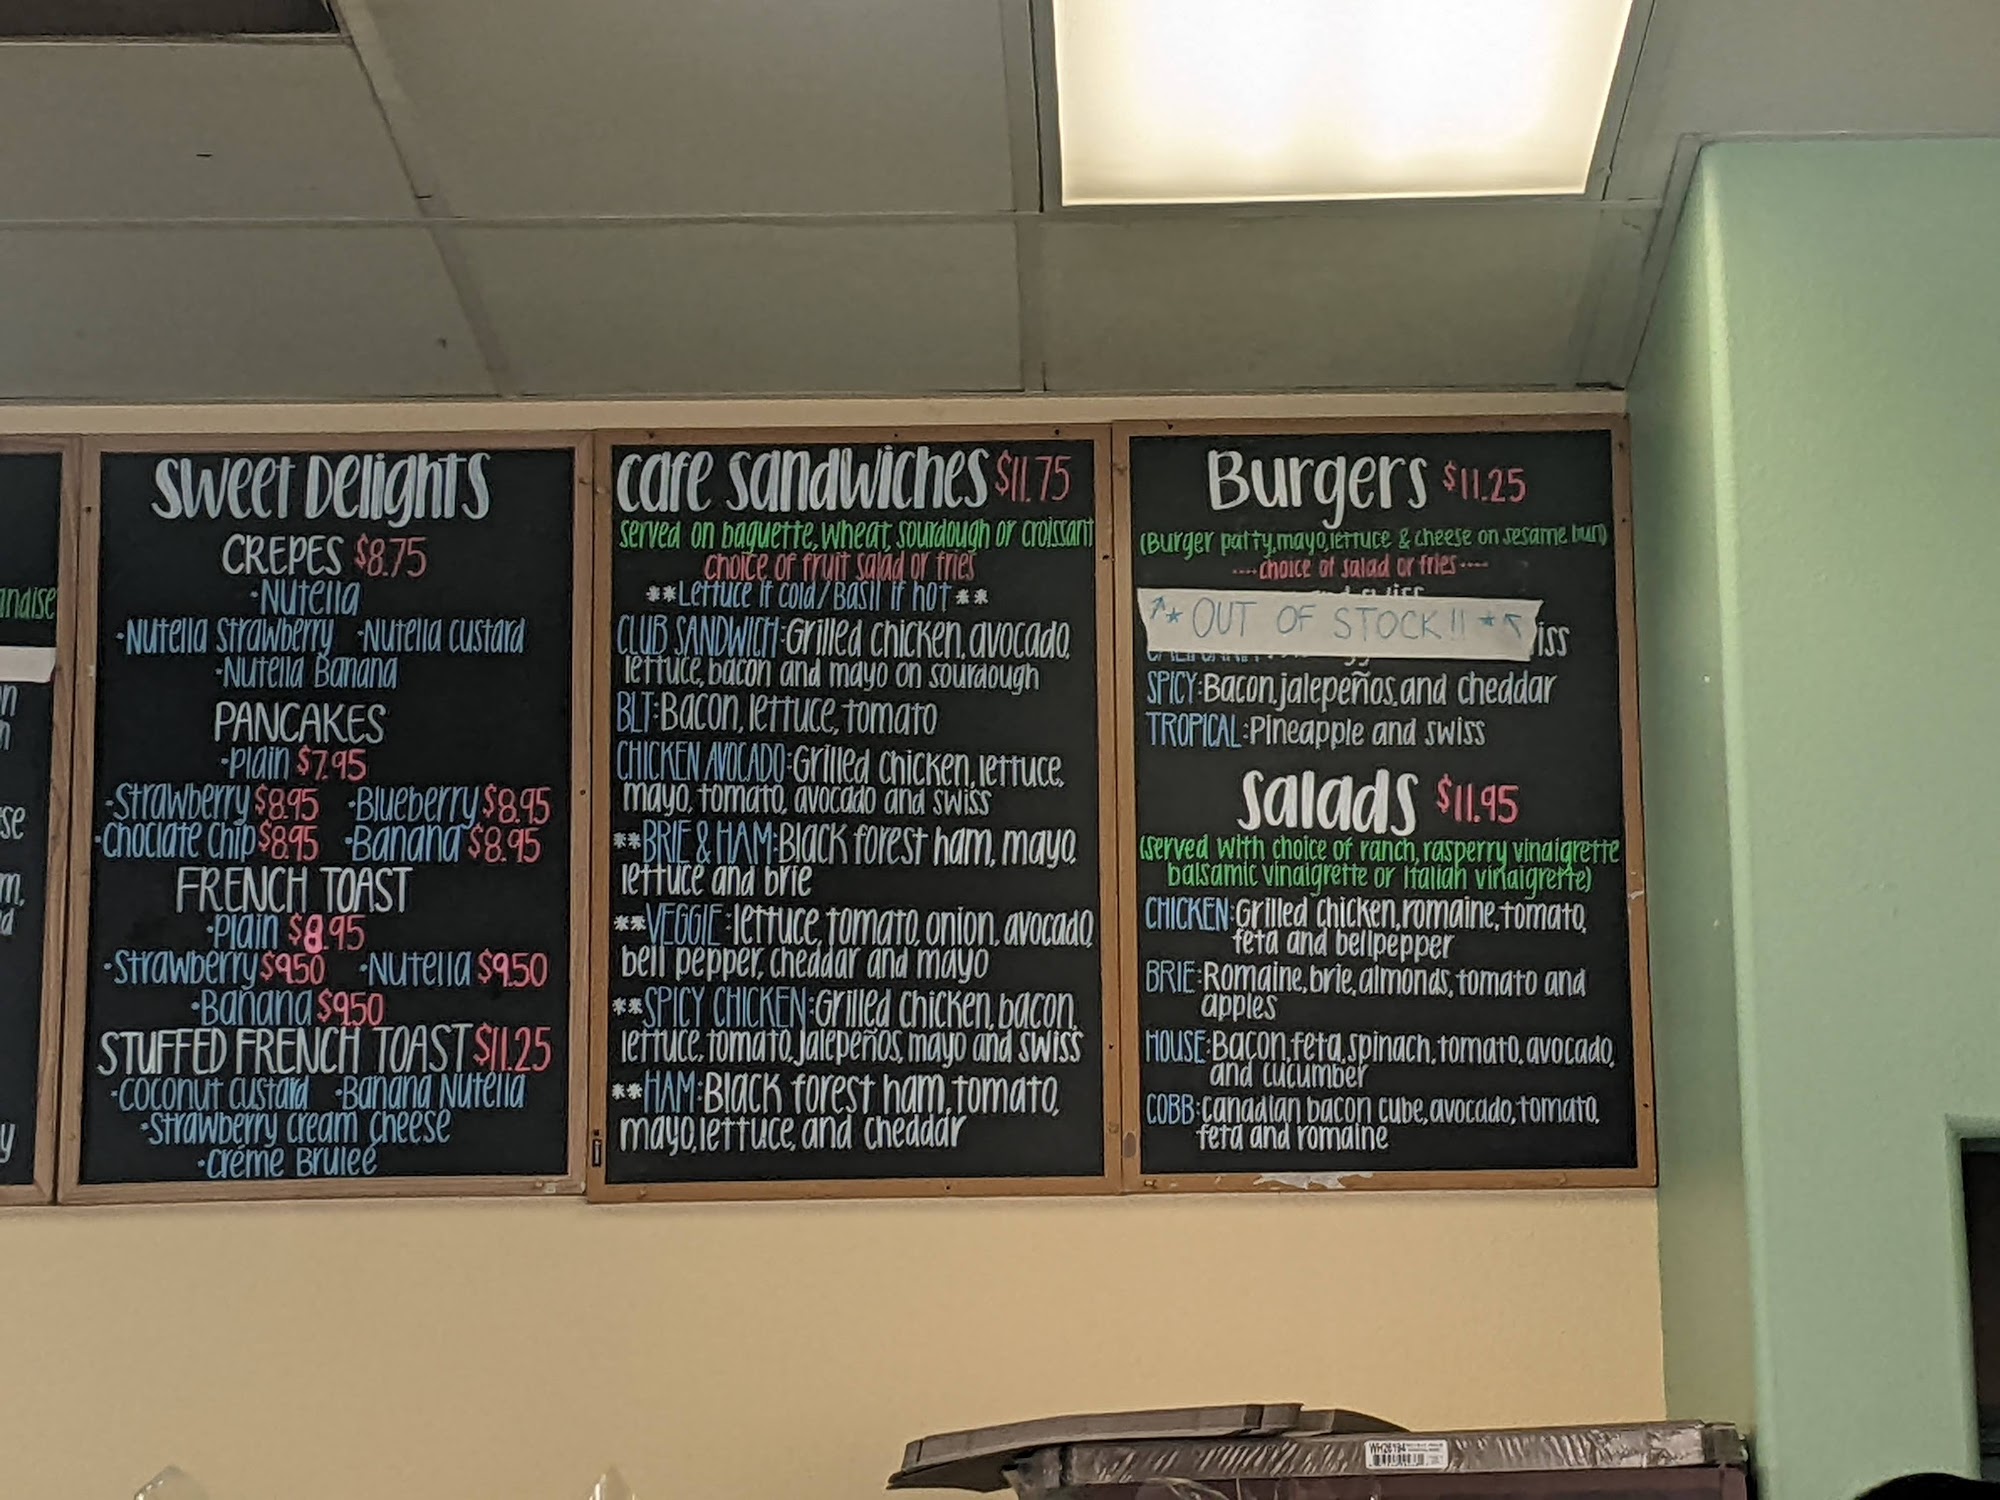 andise
n
n
se
m,
d
y
Sweet Delights
CREPES $8.75
•Nutella
•Nutella Strawberry •Nutella custard
•Nutella Banana
PANCAKES
•Plain $7.95
•Strawberry $8.95 •Blueberry $8.95
•Choclate Chip $8.95 •Banana $8.95
FRENCH TOAST
•Plain $8.95
•Strawberry $9.50 •Nutella $9.50
•Banana $9.50
STUFFED FRENCH TOAST $11.25
•Coconut Custard •Banana Nutella
•Strawberry cream cheese
•Créme Brulee
Cafe Sandwiches $11.75
served on baguette, wheat, sourdough or croissant
choice of fruit salad or fries
**Lettuce if cold/Basil if hot**
CLUB SANDWICH: Grilled chicken, avocado,
lettuce, bacon and mayo on sourdough
BLT: Bacon, lettuce, tomato
CHICKEN AVOCADO: Grilled chicken, lettuce,
mayo, tomato, avocado and swiss
**BRIE & HAM: Black forest ham, mayo,
lettuce and brie
**VEGGIE: lettuce, tomato, onion, avocado,
bell pepper, cheddar and mayo
**SPICY CHICKEN: Grilled chicken, bacon,
lettuce, tomato, jalepeños, mayo and swiss
**HAM: Black forest ham, tomato,
mayo, lettuce, and cheddar
Burgers $11.25
(Burger patty, mayo, lettuce & cheese on sesame bun)
----choice of salad or fries----
* OUT OF STOCK!! *
iss
SPICY: Bacon, jalepeños, and cheddar
TROPICAL: Pineapple and swiss
Salads $11.95
(served with choice of ranch, rasperry vinaigrette
balsamic vinaigrette or Italian vinaigrette)
CHICKEN: Grilled chicken, romaine, tomato,
feta and bellpepper
BRIE: Romaine, brie, almonds, tomato and
apples
HOUSE: Bacon, feta, spinach, tomato, avocado,
and cucumber
COBB: Canadian bacon cube, avocado, tomato,
feta and romaine
WH26194